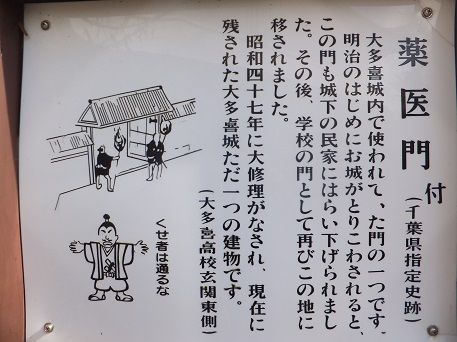 薬医門 付
(千葉県指定史跡)
大多喜城内で使われて、た門の一つです。
明治のはじめにお城がとりこわされると、
この門も城下の民家にはらい下げられまし
た。その後、学校の門として再びこの地に
移されました。
昭和四十七年に大修理がなされ、現在に
残された大多喜城ただ一つの建物です。
(大多喜高校玄関東側)
くせ者は通るな